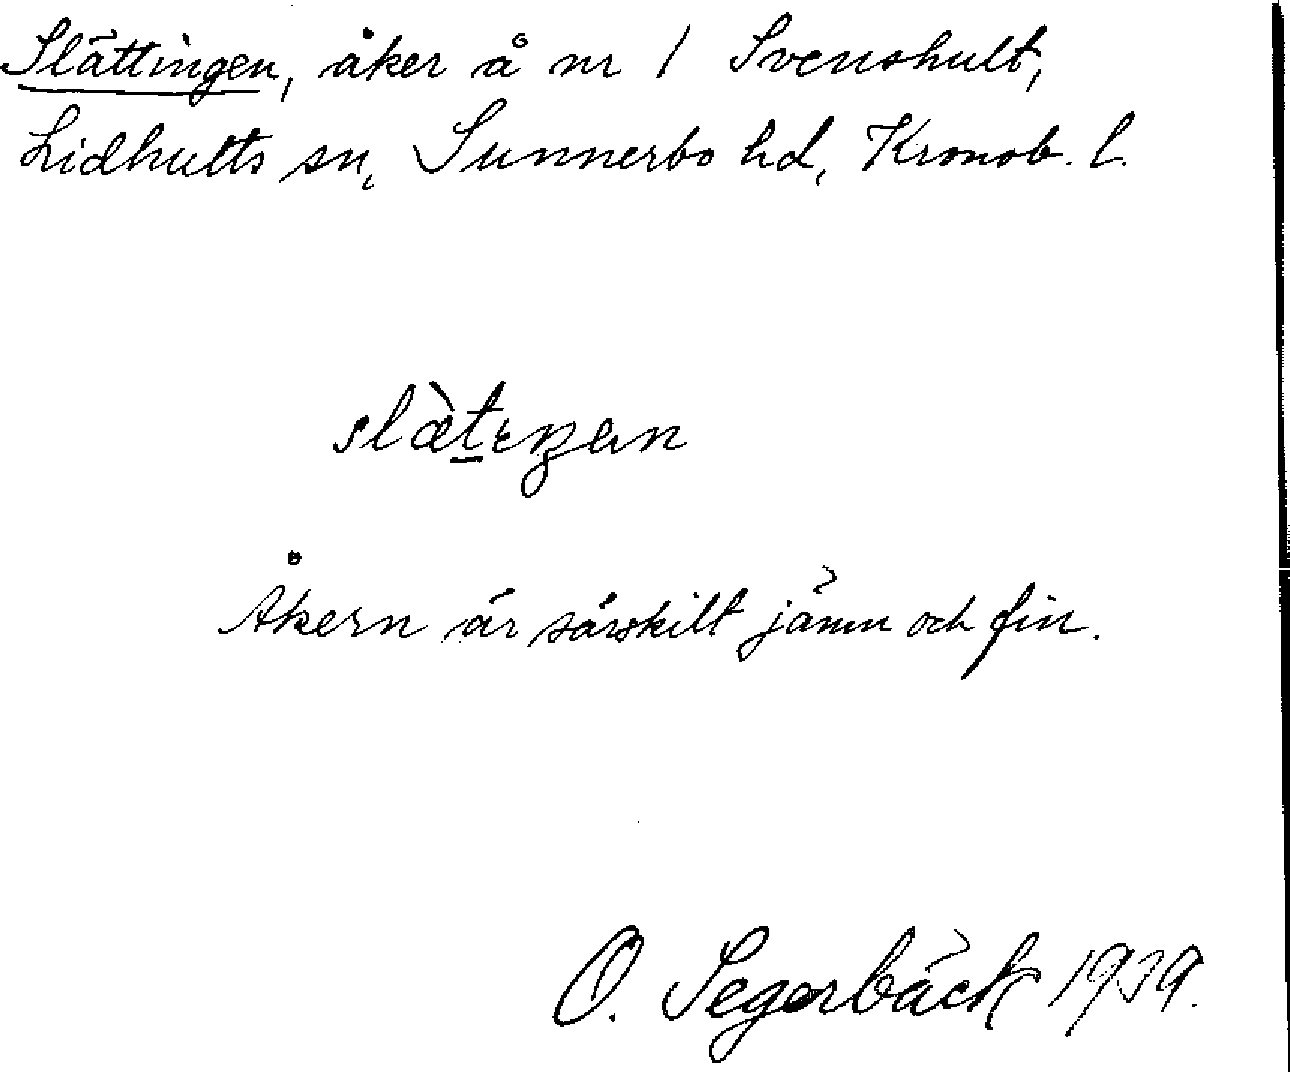 Slättingen, åker å nr 1 Svenshult,
Lidhults sn, Sunnerbo hd, Kronob. l.
Åkern är särskilt jämn och fin.
O. Segerbäck 1939.